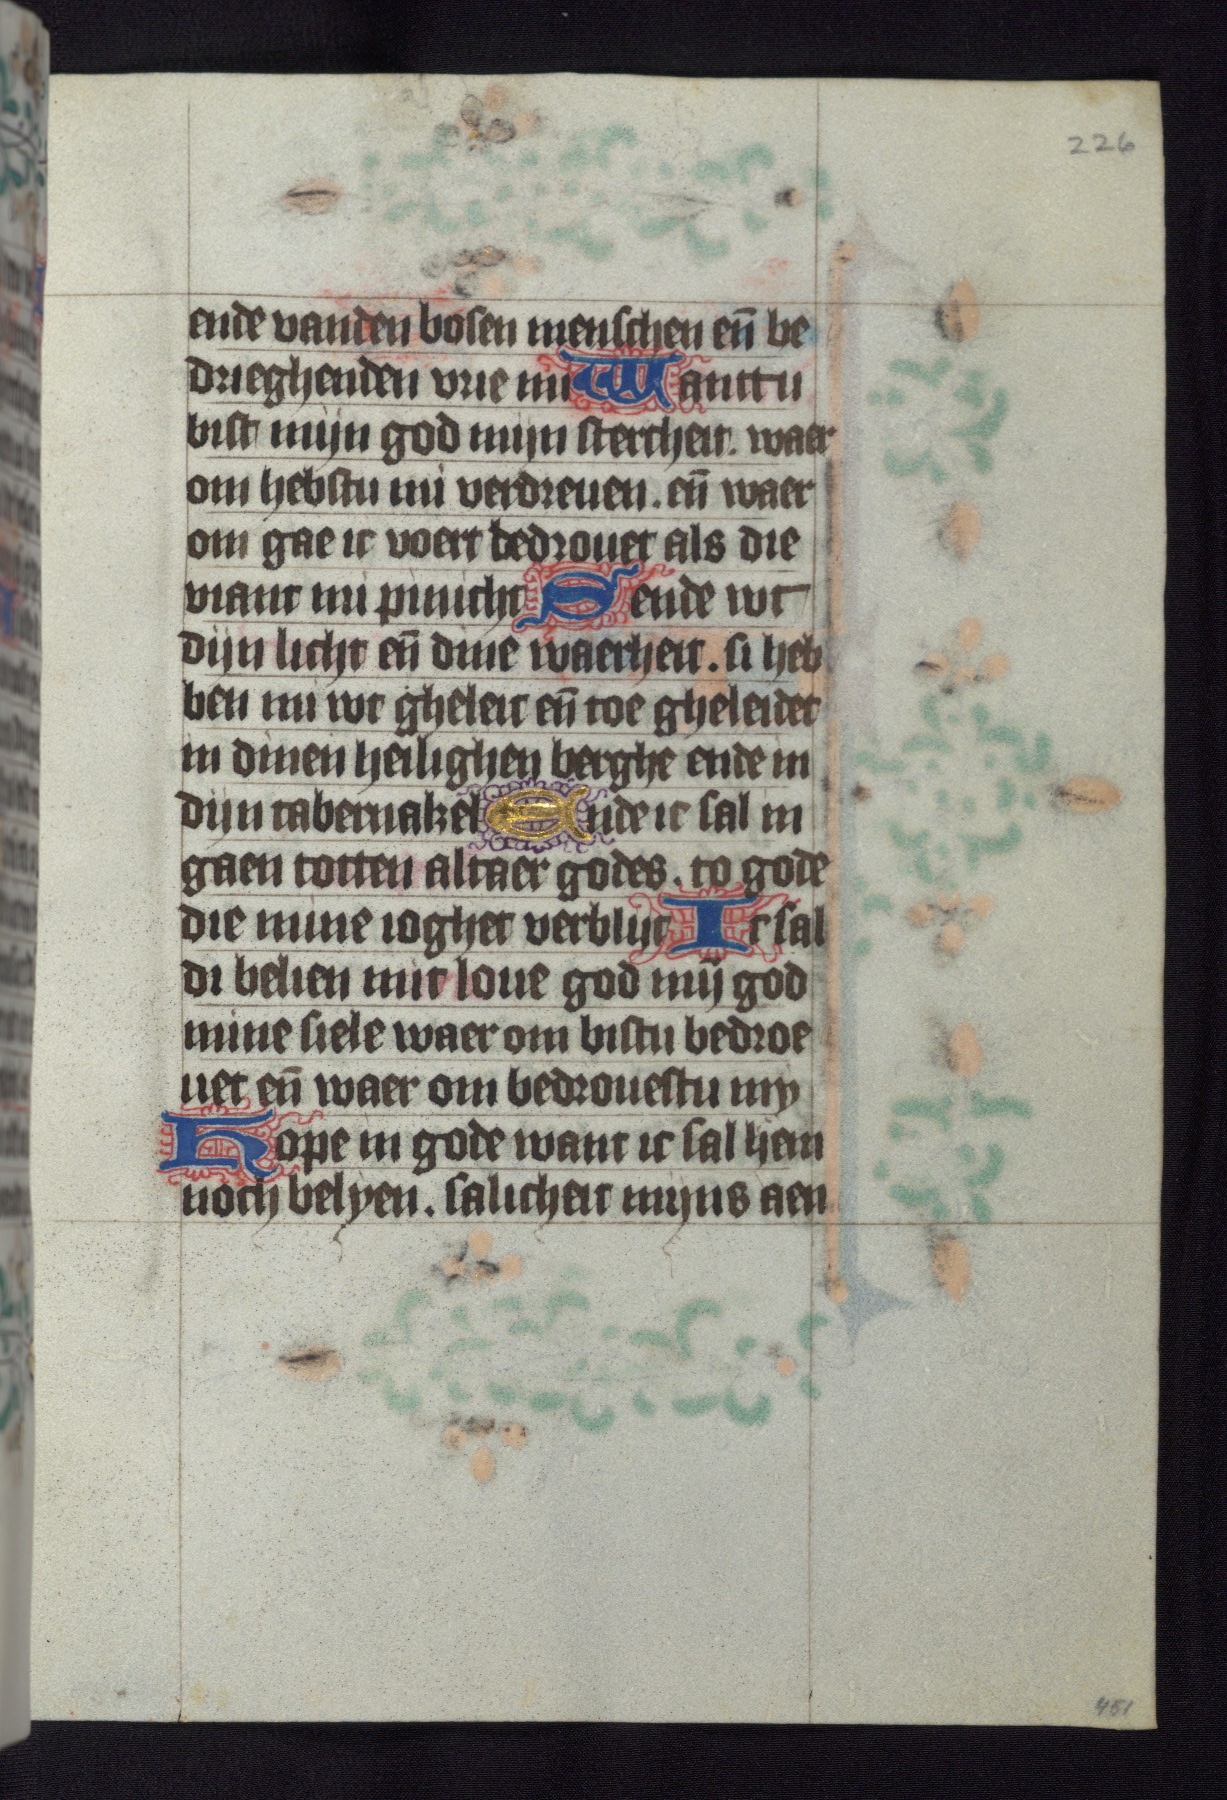 226
ende vanden bosen menschen en̄ be
drieghenden vrie mi Wanttu
bist mijn god mijn stercheit. waer
om hebstu mi verdreuen. en̄ waer
om gae ic voert bedrouet als die
viant mi pinicht Sende wt
dijn licht en̄ dine waerheit. si heb
ben mi wt gheleit en̄ toe gheleidet
in dinen heilighen berghe ende in
dijn tabernakel Ende ic sal in
gaen totten altaer godes. to gode
die mine ioghet verblijt Ic sal
di belien mit loue god mij̄ god
mine siele waer om bistu bedroe
uet en̄ waer om bedrouestu my
Hope in gode want ic sal hem
noch belyen. salicheit mijns aen
451